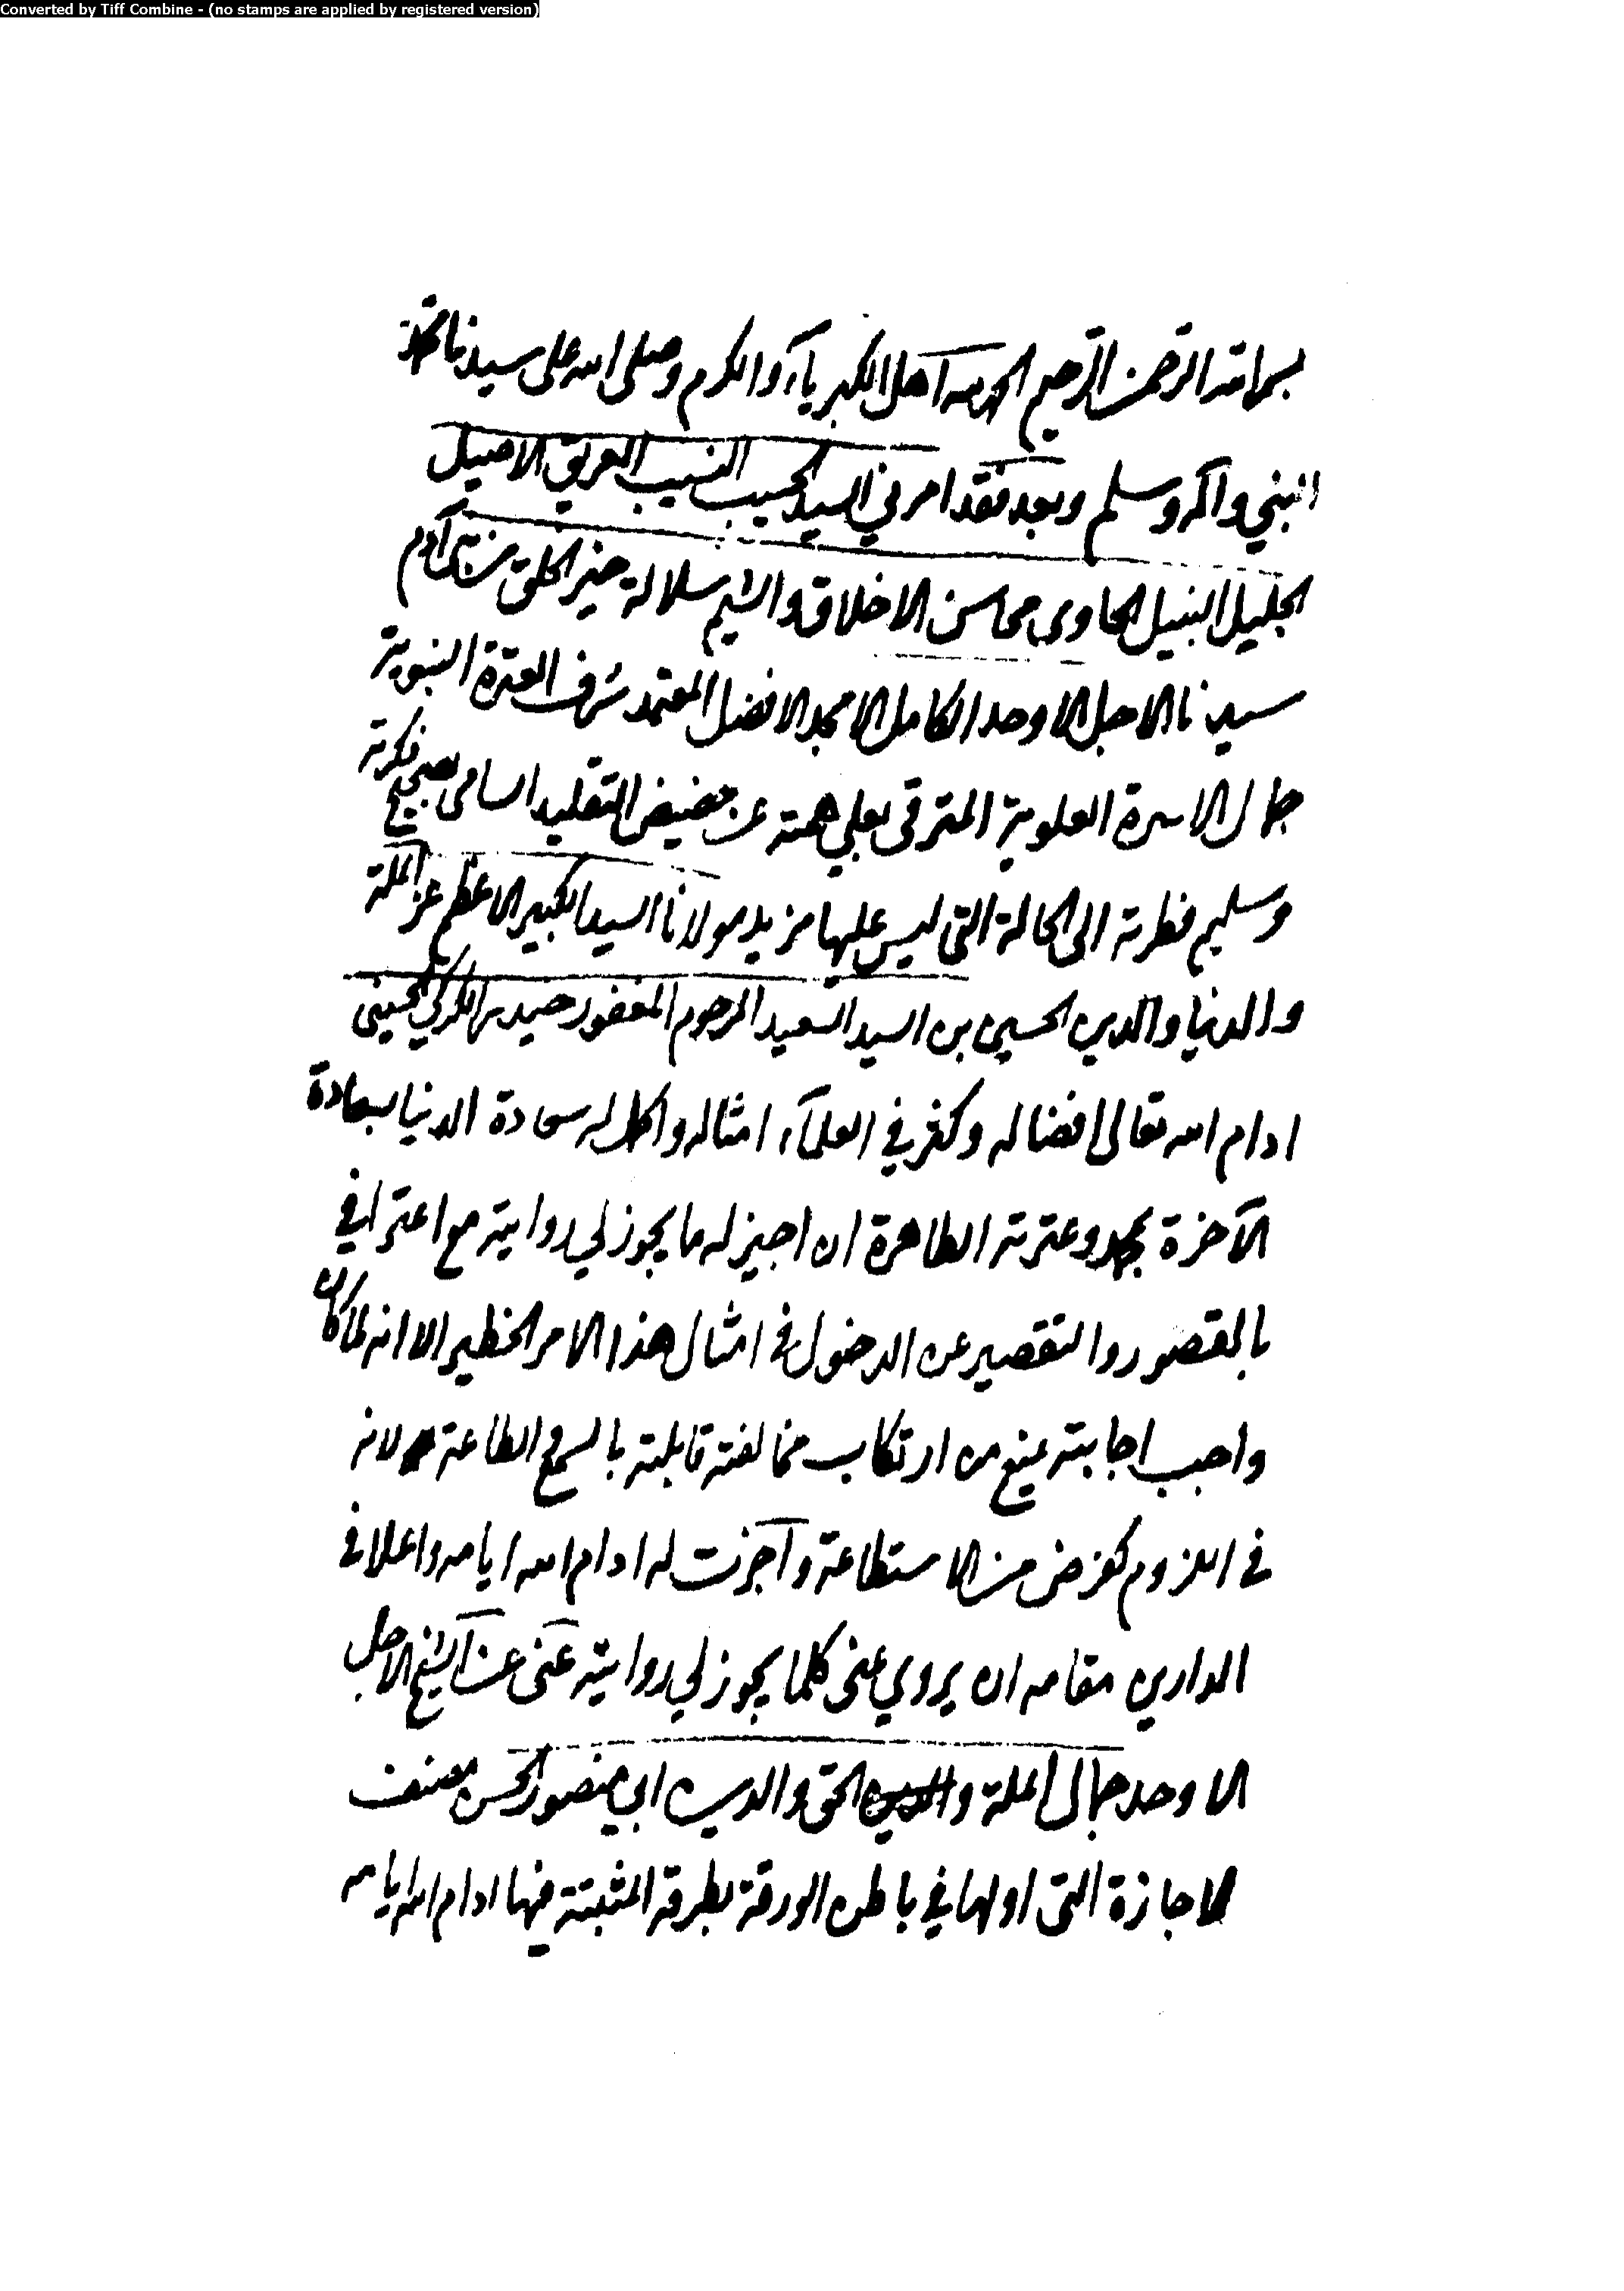 Converted by Tiff Combine - (no stamps are applied by registered version)
بسم الله الرحمن الرحيم الحمد لله اهل الكبرياء والكرم وصلى الله على سيدنا محمد
النبي واله وسلم وبعد فقد امرني السيد الحسيب النسيب العريق الاصيل
الجليل النبيل الحاوى محاسن الاخلاق والشيم سلالة خير الخلق من بني آدم
سيدنا الاجل الاوحد الكامل الامجد الافضل المعتمد شرف العترة النبوية
جمال الاسرة العلوية المترقى بعلي همته عن حضيض التقليد السامى بصحيح فكرته
وسليم فطرته الى الحالة التى ليس عليها مزيد مولانا السيد الكبير الاعظم عز الملة
والدنيا والدين الحسين بن السيد السعيد المرحوم المغفور حيدر الكركي الحسيني
ادام الله تعالى افضاله وكثر في العلماء امثاله واكمل له سعادة الدنيا بسعادة
الآخرة بمحمد وعترته الطاهرة ان اجيز له ما يجوز لي روايته مع اعترافي
بالقصور والتقصير عن الدخول في امثال هذا الامر الخطير الا انه لما كان
واجب اجابته يمنع من ارتكاب مخالفته قابلته بالسمع الطاعة لانه
في اللزوم كفرض من الاستطاعة وأجزت له ادام الله ايامه واعلا في
الدارين مقامه ان يروي عنى كلما يجوز لي روايته عنى عن الشيخ الاجل
الاوحد جمال الملة والحق والدين ابي منصور الحسن مصنف
الاجازة التى اولها في باطن الورقة بطرقه المثبتة فيها ادام الله ايامه